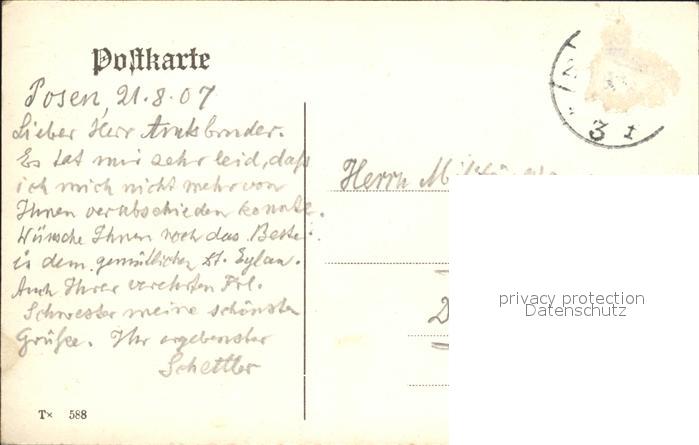 Postkarte
Posen, 21.8.07
Lieber Herr Amtsbruder.
Es tat mir sehr leid, daß
ich mich nicht mehr von
Ihnen verabschieden konnte.
Wünsche Ihnen noch das Beste
in dem gemütlichen Dt. Eylau.
Auch Ihrer verehrten Frl.
Schwester meine schönsten
Grüße. Ihr ergebenster
Schettler
Tx 588
Herrn
D
3 1
privacy protection
Datenschutz